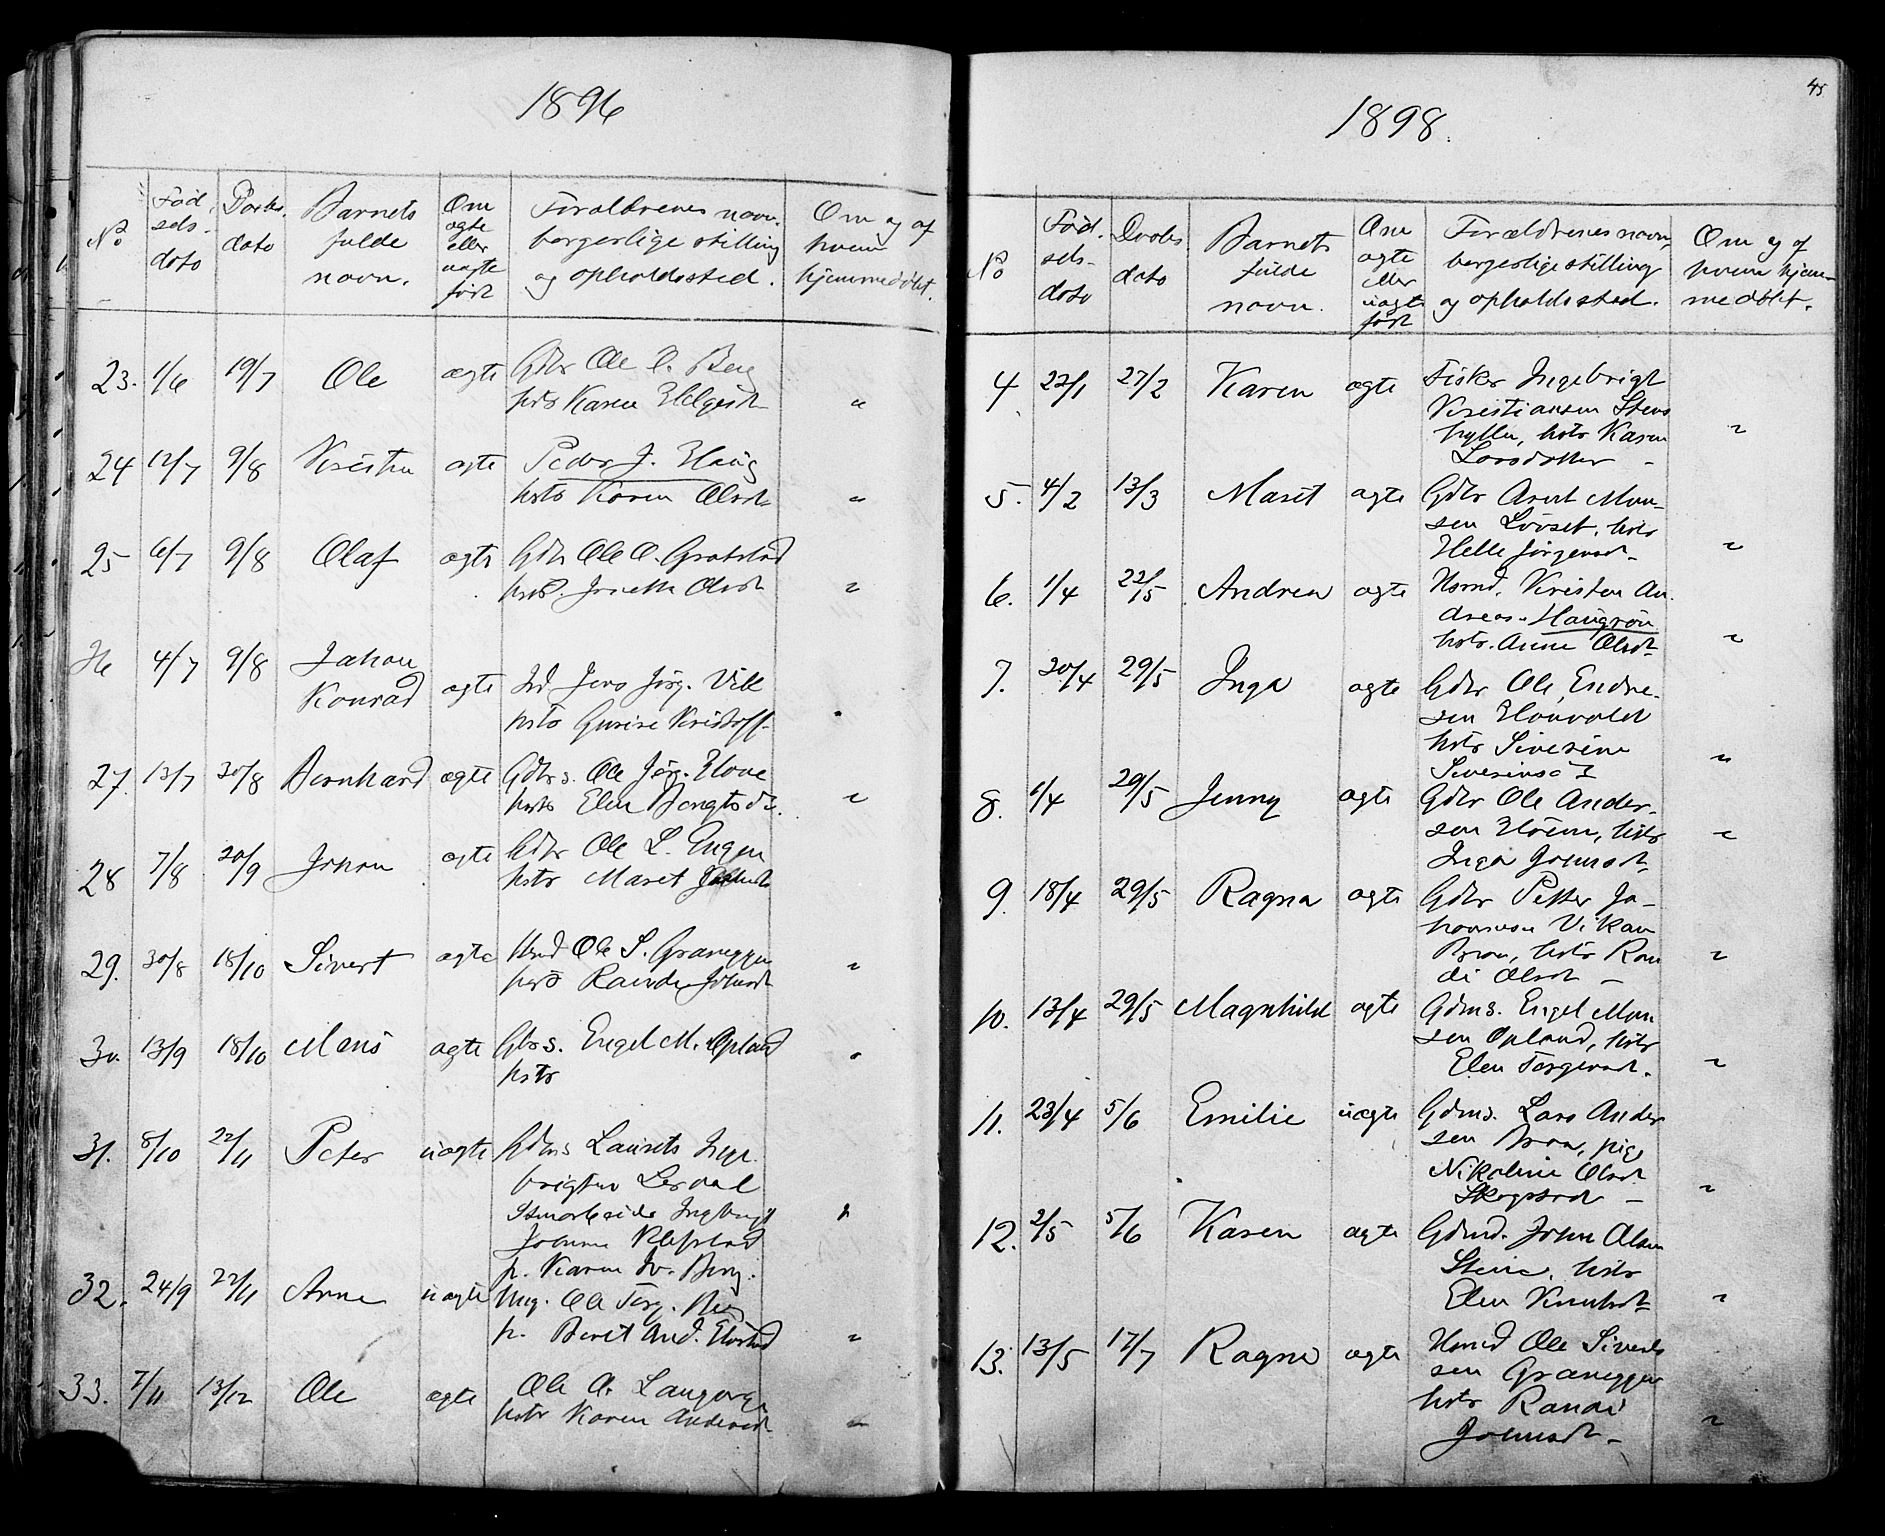 1896
No
Fød
seds-
dato
Daabs.
dato
Barnets
fulde
navn.
Om
ægte
eller
uægte
født
Forældrenes navn.
borgerlige stilling
og opholdssted.
Om og af
hvem
hjemmedøbt.
23. 1/6 19/7 Ole ægte Gdbr Ole O. Berg
hstr Karen "
24 12/7 9/8 Kristen ægte Peder J. Haug
hstr Karen Olsdt "
25 6/7 9/8 Olaf ægte Gdbr Ole O.
hstr. Olsdt "
26 4/7 9/8 Johan
Konrad ægte Jens Jørg. Vik
hstr Gurine Kristoff-
27. 13/7 30/8 Bernhard ægte Gdbrs. Ole Jørg. Hove
hstr Elen Bengtsd. "
28 7/8 20/9 Johan ægte Gdbr Ole L. Engen
hstr Maret
29. 30/8 18/10 Sivert ægte Hmd Ole S. Graneggen
hstr Randi Johnsdt "
30. 13/9 18/10 Mons ægte Gbrs. Engel M. Opland
hstr "
31. 8/10 22/11 Peter uægte Gdms Laurits Inge
brigtsen Lerdal
Ingebrigt
Johnsen
p. Karen Berg.
32. 24/9 22/11 Arne uægte Ung. Ole Berg
p. Beret And. "
33. 7/11 13/12 Ole ægte Ole A. Langørgen
hstr Karen Andersdt "
45
1898.
No
Fød.
seds-
dato
Daabs
dato
Barnets
fulde
navn.
Om
ægte
eller
uægte
født
Forældrenes navn,
borgerlige stilling
og opholdssted.
Om og af
hvem hjem-
medøbt.
4 22/1 27/2 Karen ægte Fisker Ingebrigt
Kristiansen Stens
hyllen, hstr Karen
Larsdatter - "
5. 4/2 13/3 Maret ægte Gdbr Arnt Mon-
sen Løvset, hstr
Helle Jørgensdt - "
6. 1/4 22/5 Andrea ægte Hsmd. Kristen An
dreas. Haugrøn
hstr. Anne Olsdt "
7. 20/4 29/5 Inga ægte Gdbr Ole Endre-
sen
hstr Siverine
Siverinsdt "
8. 1/4 29/5 Jenny ægte Gdbr Ole Ander-
sen Høiem, hstr
Inga Johnsdt - "
9. 18/4 29/5 Ragna ægte Gdbr Petter Jo-
hansen Vikan
Braa, hstr Ran
di Olsdt - "
10. 13/4 29/5 Magnhild ægte Gdms. Engel Mon
sen Opland, hstr
Elen Torgersdt. "
11. 23/4 5/6 Emilie uægte Gdms. Lars Ander
sen Braa, pige
Nikoline Olsdt
Skogstad - "
12. 2/5 5/6 Karen ægte Gdmd. John Olsen
Steine, hstr
Elen Knutsdt "
13. 13/5 17/7 Ragna ægte Hsmd Ole Siverts
sen Graneggen
hstr Randi
Johnsdt - "